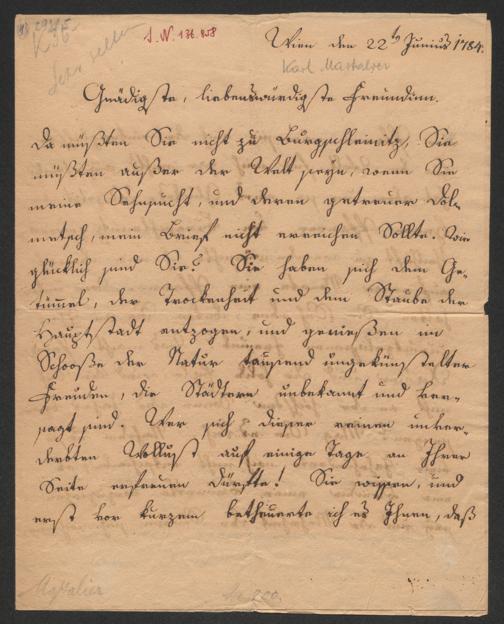 I. N. 136.858
Wien den 22t Junius 1784.
Gnädigste, liebenswürdigste Freundinn.
Da müßten Sie nicht zu Burgschleinitz, Sie
müßten außer der Welt seyn, wenn Sie
meine Sehnsucht, und deren getreuer Dol-
metsch, mein Brief nicht erreichen sollte. Wie
glücklich sind Sie! Sie haben sich dem Ge-
tümmel, der Trockenheit und dem Staube der
Hauptstadt entzogen, und genießen im
Schooße der Natur tausend ungekünstelter
Freuden, die Städtern unbekannt und ver-
sagt sind. Wer sich dieser reinen unver-
derbten Wollust auf einige Tage an Ihrer
Seite erfreuen dürfte! Sie wissen, und
erst vor kurzem betheuerte ich es Ihnen, daß